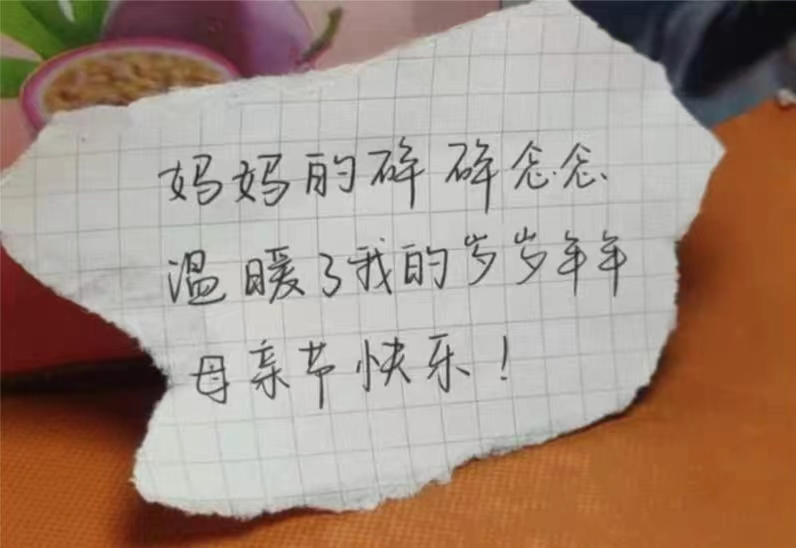 妈妈的碎碎念念
温暖了我的岁岁年年
母亲节快乐!